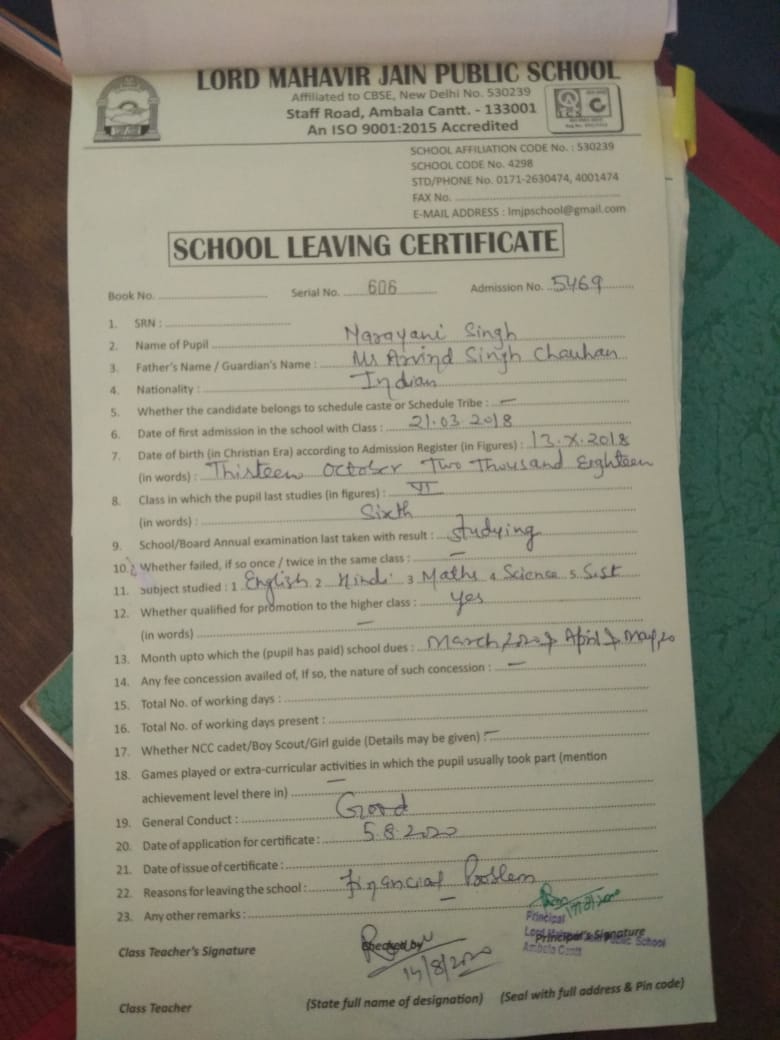 LORD MAHAVIR JAIN PUBLIC SCHOOL
Affiliated to CBSE, New Delhi No. 530239
Staff Road, Ambala Cantt. - 133001
An ISO 9001:2015 Accredited
SCHOOL AFFILIATION CODE No. : 530239
SCHOOL CODE No. 4298
STD/PHONE No. 0171-2630474, 4001474
FAX No.
E-MAIL ADDRESS : lmjpschool@gmail.com
SCHOOL LEAVING CERTIFICATE
Book No. Serial No. 606 Admission No. 5469
1. SRN :
2. Name of Pupil Narayani Singh
3. Father's Name / Guardian's Name : Mr Arvind Singh Chauhan
4. Nationality : Indian
5. Whether the candidate belongs to schedule caste or Schedule Tribe : —
6. Date of first admission in the school with Class : 21.03.2018
7. Date of birth (in Christian Era) according to Admission Register (in Figures) : 13.X.2018
(in words) : Thirteen October Two Thousand Eighteen
8. Class in which the pupil last studies (in figures) : VI
(in words) : Sixth
9. School/Board Annual examination last taken with result : Studying
10. Whether failed, if so once / twice in the same class : —
11. Subject studied : 1 English 2 Hindi 3 Maths 4 Science 5 S.St
12. Whether qualified for promotion to the higher class : Yes
(in words) —
13. Month upto which the (pupil has paid) school dues : March, April, May,20
14. Any fee concession availed of, If so, the nature of such concession : —
15. Total No. of working days :
16. Total No. of working days present :
17. Whether NCC cadet/Boy Scout/Girl guide (Details may be given) : —
18. Games played or extra-curricular activities in which the pupil usually took part (mention
achievement level there in) —
19. General Conduct : Good
20. Date of application for certificate : 5.8.2020
21. Date of issue of certificate :
22. Reasons for leaving the school : Financial Problem
23. Any other remarks : —
Principal
Class Teacher's Signature Checked by Principal's Signature
Public School
Ambala Cantt
14/8/2020
Class Teacher (State full name of designation) (Seal with full address & Pin code)